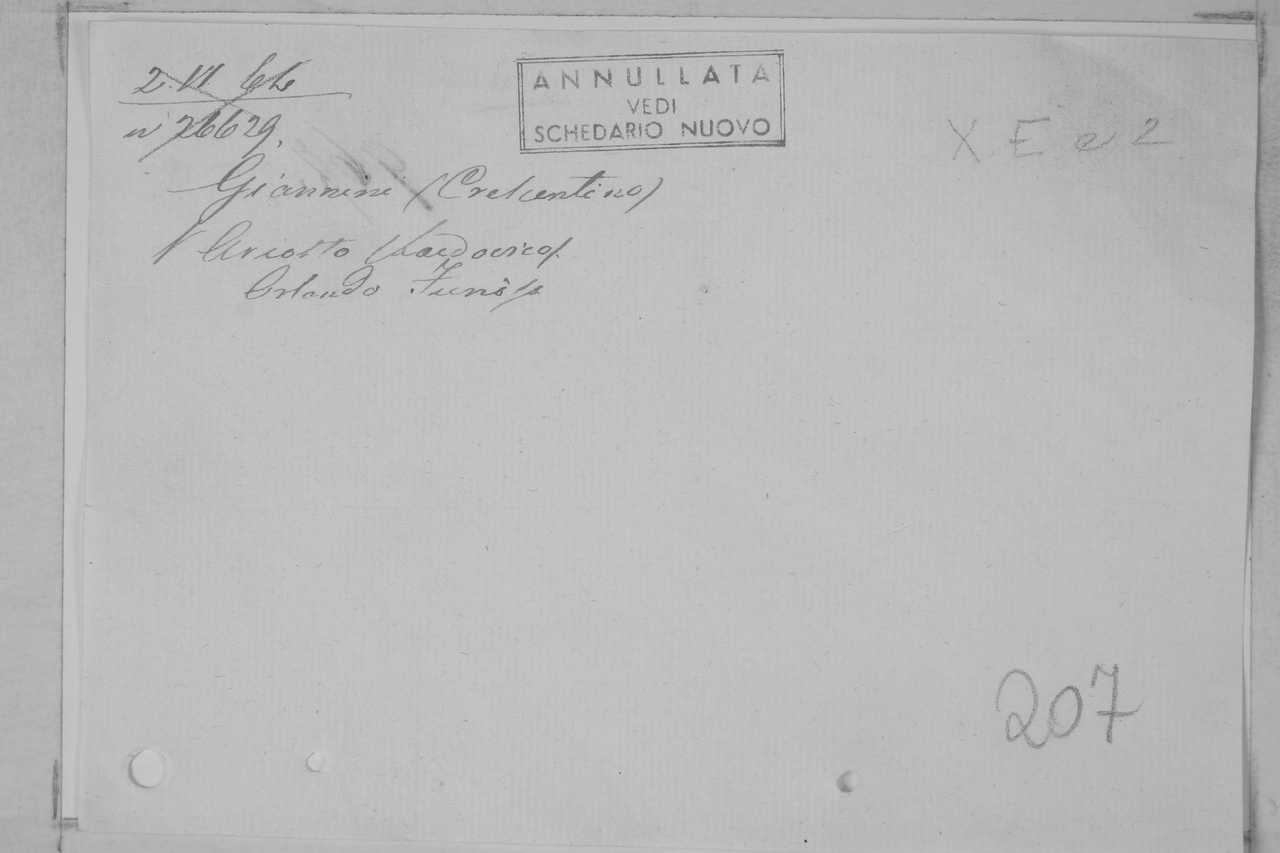 2. VI
n° 26629.
ANNULLATA
VEDI
SCHEDARIO NUOVO
X E e 2
Giannini (Crescentino)
Ariosto (Lodovico).
Orlando Furioso
207